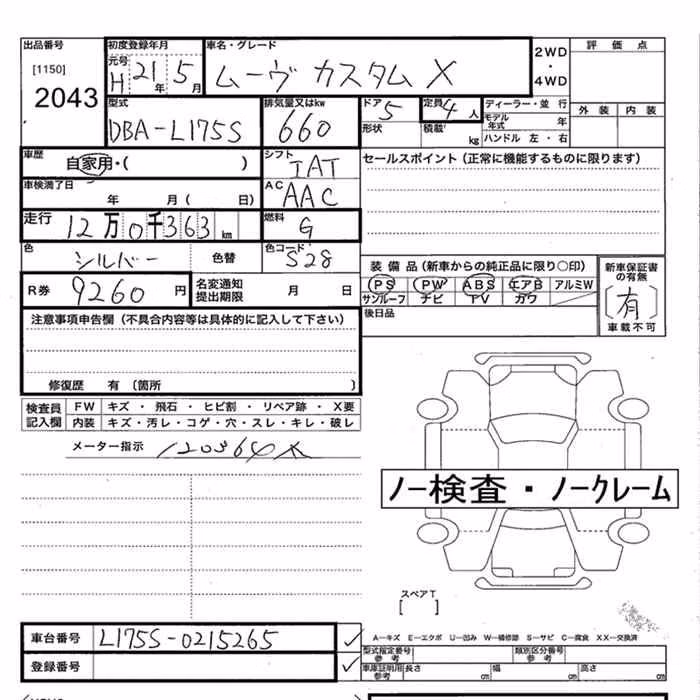 出品番号 初度登録年月 車名・グレード 2WD・4WD 評価点
[1150] 元号 H 21年 5月 ムーヴ カスタム X
2043
型式 排気量又はkw ドア 5 定員 4 人 ディーラー・並行 外装 内装
DBA-L175S 660 形状 積載 kg モデル年式 年
ハンドル 左・右
車歴 自家用・( ) シフト IAT セールスポイント (正常に機能するものに限ります)
車検満了日 年 月 ( 日) AC AAC
走行 12万0千363km 燃料 G
色 シルバー 色替 色コード S28
装備品 (新車からの純正品に限り○印) 新車保証書の有無
R券 9260円 名変通知提出期限 月 日 PS PW ABS エアB アルミW [有]
サンルーフ ナビ TV カワ 車載不可
注意事項申告欄 (不具合内容等は具体的に記入して下さい) 後日品
修復歴 有 〔箇所 〕
検査員記入欄 FW キズ・飛石・ヒビ割・リペア跡・X要
内装 キズ・汚レ・コゲ・穴・スレ・キレ・破レ
メーター指示 120364K
ノー検査・ノークレーム
スペアT
[ ]
車台番号 L175S-0215265 A―キズ E―エクボ U―凹み W―補修跡 S―サビ C―腐食 XX―交換済
型式指定番号 参考 類別区分番号 参考
登録番号 車庫証明用参考 長さ cm 幅 cm 高さ cm